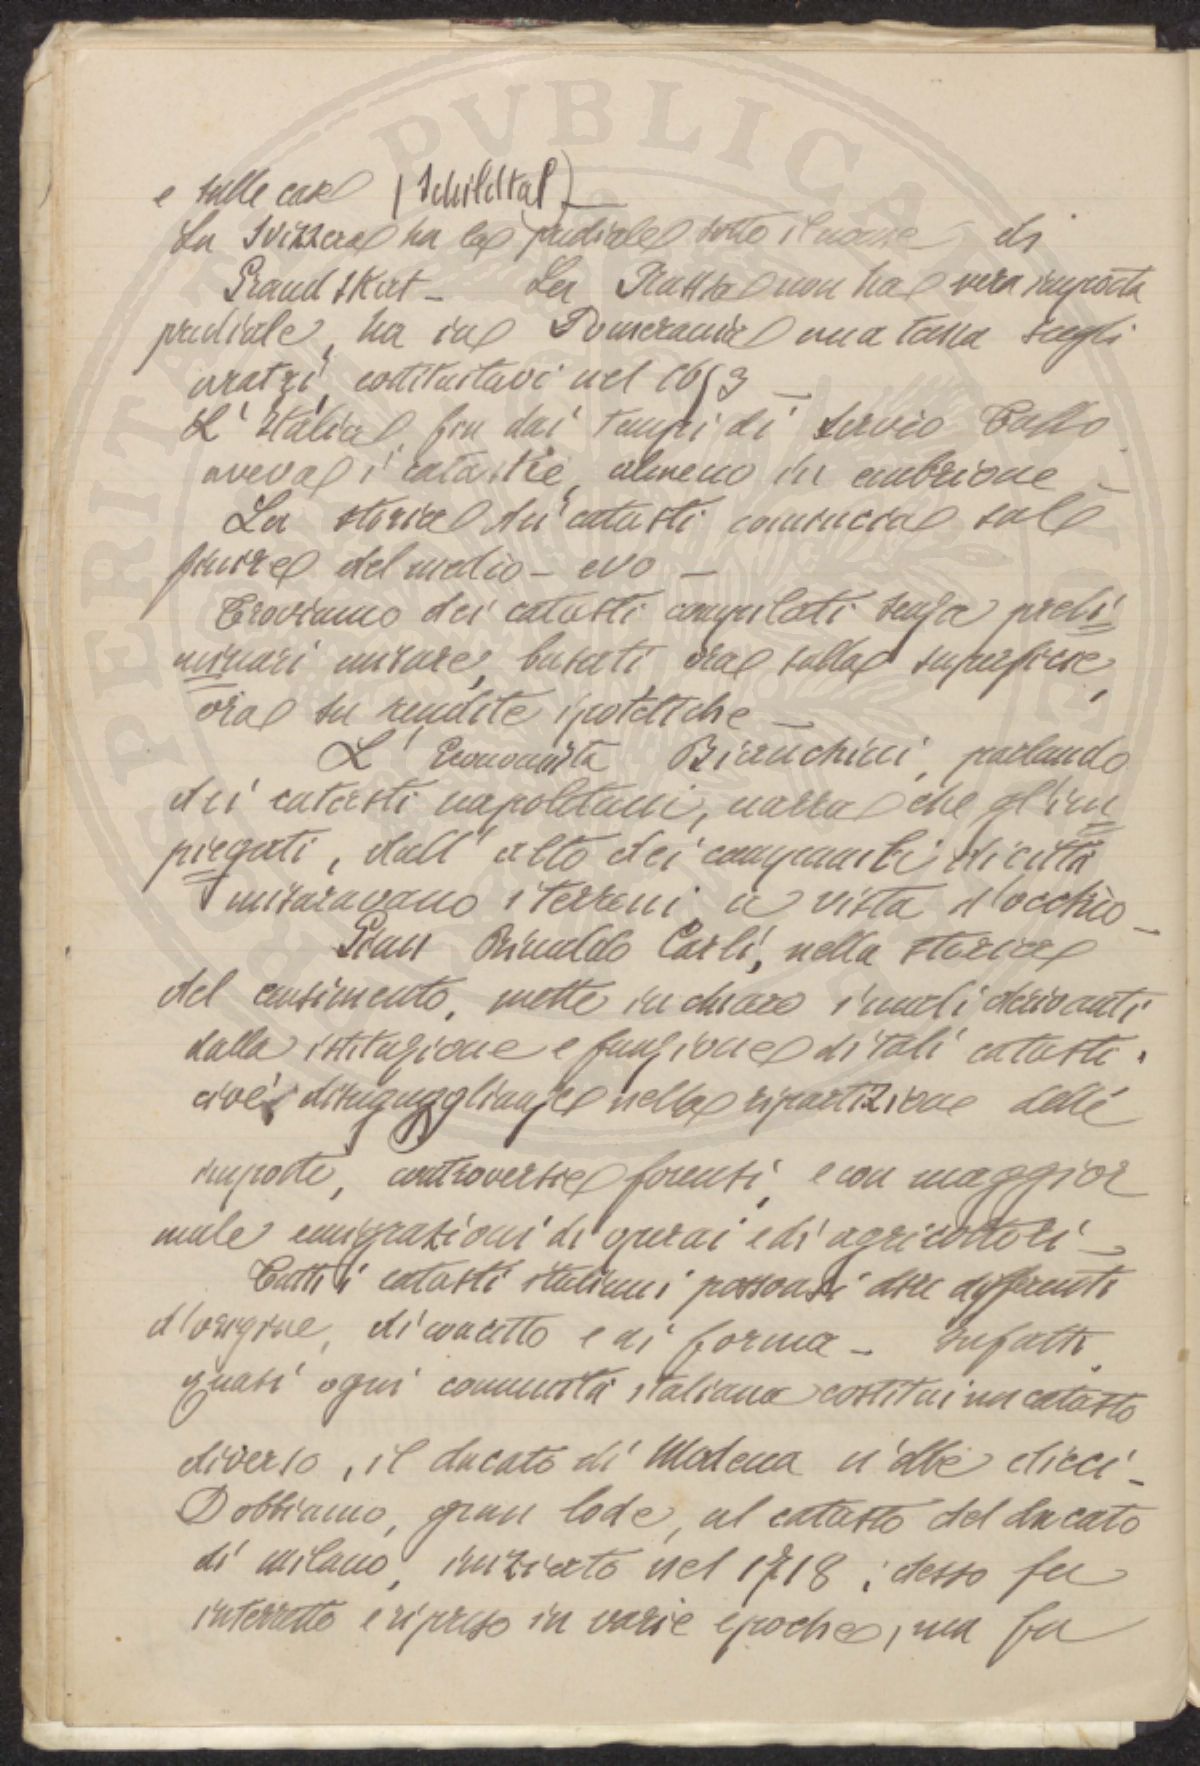 e sulle case (Schildtal)
La Svizzera ha la prediale sotto il nome di
Grand skat - La Prussia non ha vera imposta
prediale, ha in Pomerania una tassa sugli
aratri, costituitavi nel 1653 -
L'Italia, fin dai tempi di Servio Tullo,
aveva i catastri, almeno in embrione -
La storia dei catasti comincia sul
finire del medio - evo -
Troviamo dei catasti compilati senza preli
minari misure, basati ora sulla superficie,
ora su rendite ipotetiche -
L'economista Bianchini, parlando
dei catasti napoletani, narra che gl'im
piegati, dall'alto dei campanili di città
misuravano i terreni a vista d'occhio -
Gian Rinaldo Carli, nella storia
del censimento, mette in chiaro i mali derivanti
dalla istituzione e funzione di tali catasti.
cioè: disuguaglianze nella ripartizione delle
imposte, controversie forensi, e con maggior
male emigrazioni di operai e di agricoltori -
Tutti i catasti italiani possonsi dire differenti
d'origine, di concetto e di forma - Infatti,
quasi ogni comunità italiana costituì un catasto
diverso, il ducato di Modena n'ebbe dieci -
Dobbiamo, gran lode, al catasto del ducato
di milano, iniziato nel 1718; desso fu
interrotto e ripreso in varie epoche, ma fu